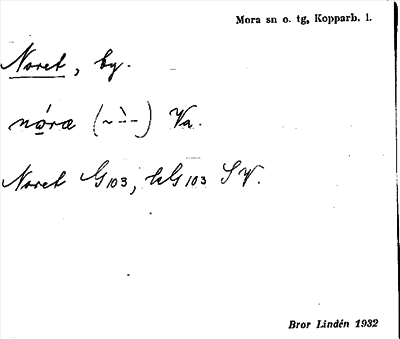 Mora sn o. tg, Kopparb. l.
Noret, by.
Va.
Noret G103, kG103 SV.
Bror Lindén 1932